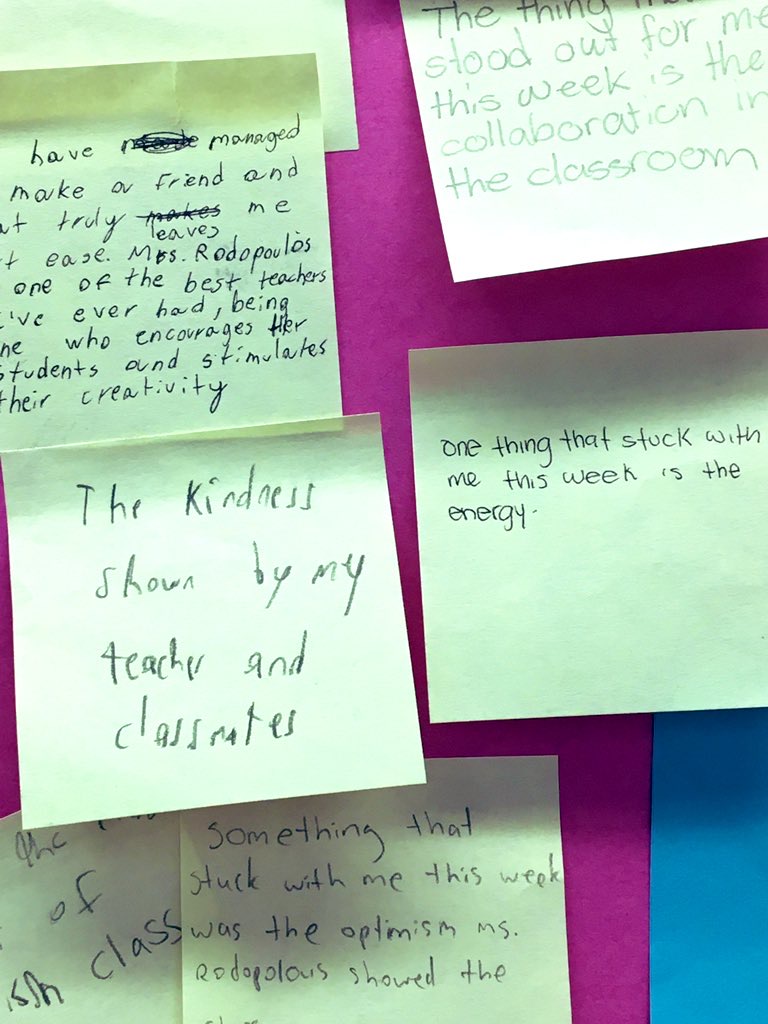 The thing
stood out for me
this week is the
collaboration in
the classroom
have made managed
make a friend and
truly makes me
leaves
ease. Mrs. Rodopoulos
one of the best teachers
I've ever had, being
who encourages Her
students and stimulates
their creativity
one thing that stuck with
me this week is the
energy.
The Kindness
shown by my
teacher and
classmates
the
of
class
something that
stuck with me this week
was the optimism ms.
Rodopolous showed the